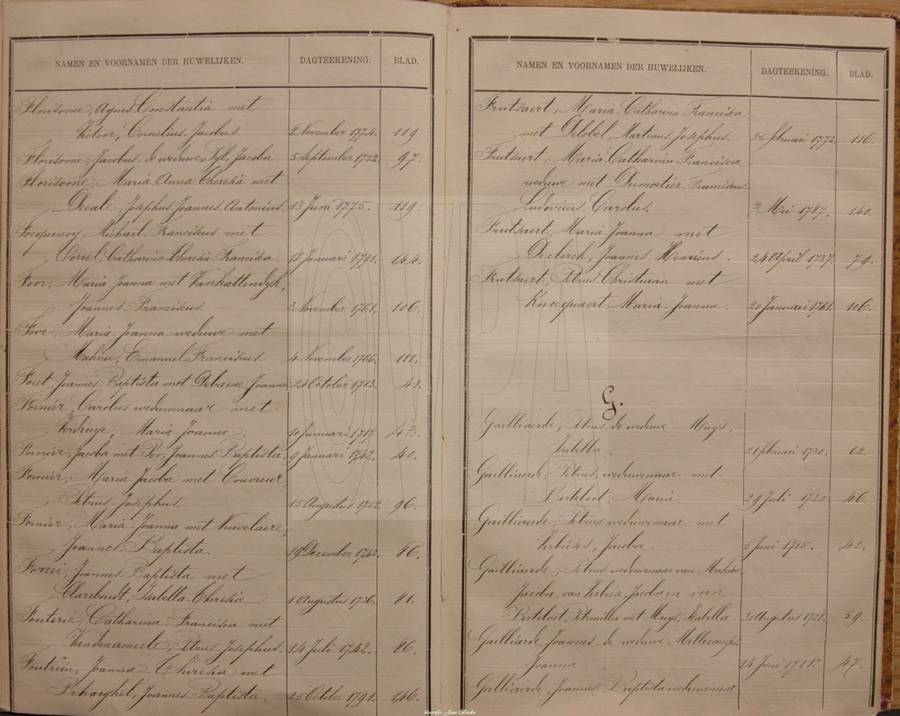 NAMEN EN VOORNAMEN DER HUWELIJKEN. DAGTEEKENING. BLAD.
Florisoone, Agnes Constantia met
Cornelius, Jacobus 2 November 1774. 119
Florisoone, Jacobus, de weduwe Syl, Jacoba 5 September 1752. 97.
Florisoone, Maria Anna Theresia met
Decale, Josephus, Joannes, Antonius. 13 Juni 1775. 119.
Focquenoy, Michael, Franciscus met
Catharina Theresia Francisca 18 Januari 1791. 144.
Foor, Maria Joanna met Vanhattendyk,
Joannes Franciscus. 3 November 1761. 106.
Foor, Maria, Joanna weduwe met
Emanuel Franciscus. 4 November 1766. 111.
Foret, Joannes Baptista met Debaene Joanna 24 October 1713. 41.
Fornier, Carolus weduwenaar met
Verbrugge, Maria Joanna. 10 Januari 1717. 43.
Fornier, Jacoba met Joannes Baptista. 9 Januari 1742. 40.
Fornier, Maria Jacoba met Couvreur,
Petrus Josephus. 15 Augustus 1752. 96.
Fornier, Maria Joanna met
Joannes Baptista. 19 December 1742. 86.
Joannes Baptista met
Clarebout, Isabella Theresia 1 Augustus 1736. 81.
Fouterie, Catharina Francisca met
Vandenameele, Petrus, Josephus. 14 Juli 1742. 86.
Joanna Theresia met
Joannes Baptista. 25 October 1791. 146.
NAMEN EN VOORNAMEN DER HUWELIJKEN. DAGTEEKENING. BLAD.
Frutsaert, Maria Catharina Francisca
met Delobel, Martinus Josephus. 25 februari 1772. 116.
Frutsaert, Maria Catharina Francisca
weduwe met Dumortier, Franciscus
Ludovicus, Carolus. 2 Mei 1787. 141.
Frutsaert, Maria Joanna met
Declerck, Joannes Henricus. 24 April 1737. 79.
Frutsaert, Petrus Christiaan met
Knockaert, Maria Joanna. 20 Januari 1761. 106.
G.
Gailliaerde, Petrus, de weduwe Muys,
Isabella. 21 februari 1730. 62.
Gailliaerde, Petrus, weduwenaar met
Berteloot, Maria. 29 Juli 1720. 46.
Gailliaerde, Petrus weduwenaar met
Jacoba. 5 Juni 1715. 42.
Gailliaerde, Petrus weduwenaar van
Jacoba, van Jacoba en van
Berteloot, Petronilla met Muys, Isabella. 2 Augustus 1728. 59.
Gailliaerde, Joannes de weduwe Millecamps,
Joanna 14 Juni 1721. 47.
Gailliaerde, Joannes Baptista weduwenaar